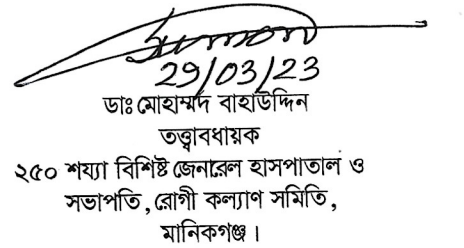 29/03/23
ডাঃ মোহাম্মদ বাহাউদ্দিন
তত্ত্বাবধায়ক
২৫০ শয্যা বিশিষ্ট জেনারেল হাসপাতাল ও
সভাপতি, রোগী কল্যাণ সমিতি,
মানিকগঞ্জ।